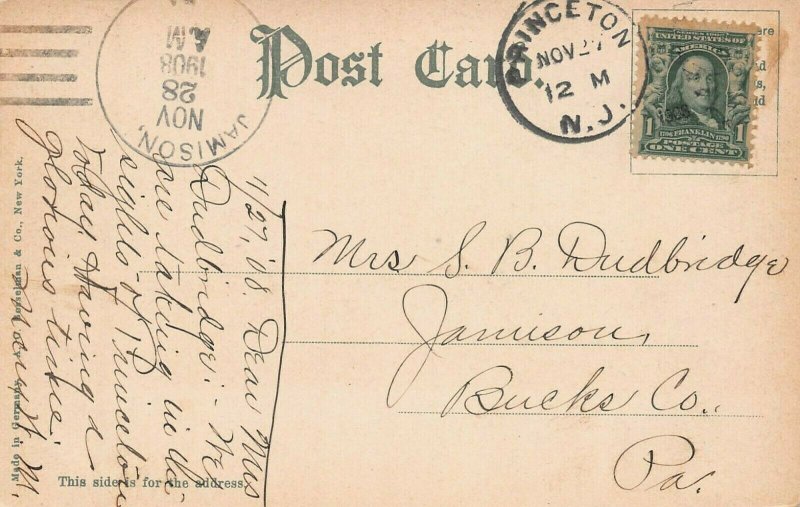 Post Card.
PRINCETON
NOV 27
12 M
N.J.
JAMISON,
NOV
28
A.M
1908
UNITED STATES OF
AMERICA
1 FRANKLIN 1
POSTAGE
ONE CENT
11/27,'08. Dear Mrs
Dudbridge:- We
are taking in the
sights of Princeton
today. Having a
glorious time.
Mrs S. B. Dudbridge
Jamison,
Bucks Co.,
Pa.
This side is for the address.
Made in Germany, & Co., New York.